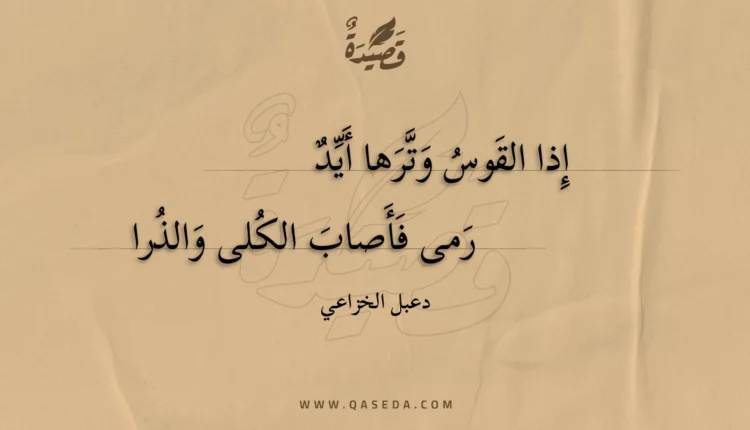 قَصِيدَةٌ
إِذا القَوسُ وَتَّرَها أَيِّدٌ
رَمى فَأَصابَ الكُلى وَالذُرا
دعبل الخزاعي
WWW.QASEDA.COM